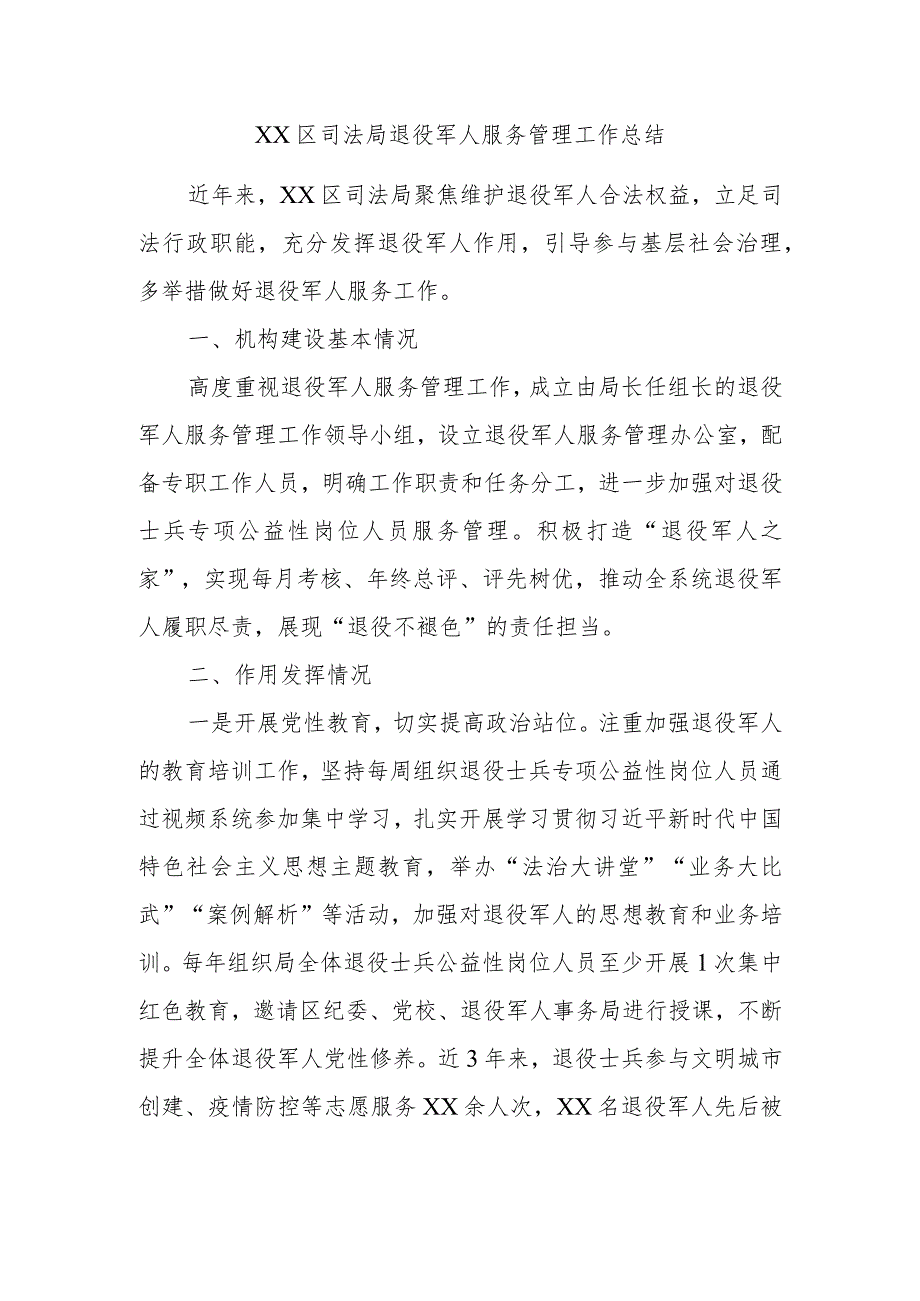 XX区司法局退役军人服务管理工作总结
近年来，XX区司法局聚焦维护退役军人合法权益，立足司
法行政职能，充分发挥退役军人作用，引导参与基层社会治理，
多举措做好退役军人服务工作。
一、机构建设基本情况
高度重视退役军人服务管理工作，成立由局长任组长的退役
军人服务管理工作领导小组，设立退役军人服务管理办公室，配
备专职工作人员，明确工作职责和任务分工，进一步加强对退役
士兵专项公益性岗位人员服务管理。积极打造“退役军人之
家”，实现每月考核、年终总评、评先树优，推动全系统退役军
人履职尽责，展现“退役不褪色”的责任担当。
二、作用发挥情况
一是开展党性教育，切实提高政治站位。注重加强退役军人
的教育培训工作，坚持每周组织退役士兵专项公益性岗位人员通
过视频系统参加集中学习，扎实开展学习贯彻习近平新时代中国
特色社会主义思想主题教育，举办“法治大讲堂”“业务大比
武”“案例解析”等活动，加强对退役军人的思想教育和业务培
训。每年组织局全体退役士兵公益性岗位人员至少开展1次集中
红色教育，邀请区纪委、党校、退役军人事务局进行授课，不断
提升全体退役军人党性修养。近3年来，退役士兵参与文明城市
创建、疫情防控等志愿服务XX余人次，XX名退役军人先后被